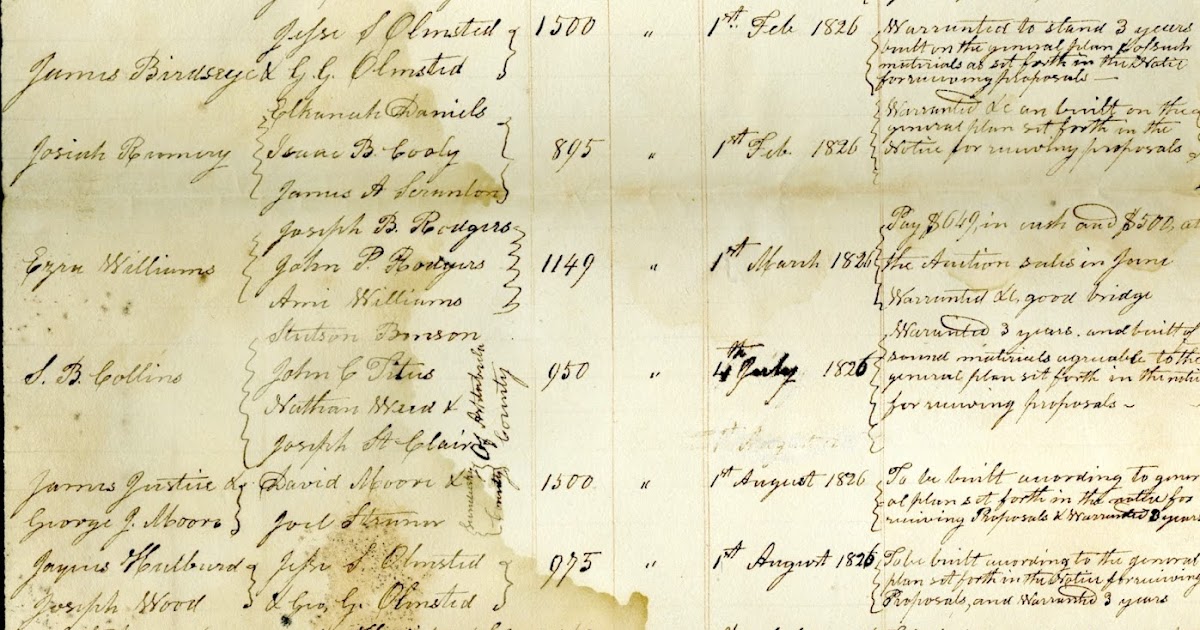 Jesse S Olmsted 1500 " 1st. Feb 1826 Warranted to stand 3 years
built on the general plan & of such
James Birdseye & G. G. Olmsted materials as set forth in the Notice
for receiving proposals —
Elkanah Daniels Warranted &c an built on the
general plan set forth in the
Josiah Rumery Isaac B. Cooly 895 " 1st Feb. 1826 Notice for receiving proposals
James A Scranton
Joseph B. Rodgers Pay $649, in cash and $500, at
Ezra Williams John P. Rodgers 1149 " 1st March 1826 the Auction sales in June
Ami Williams Warranted &c, good bridge
Stutson Benson Warranted 3 years. and built of
sound materials agreeable to the
S. B. Collins John C Titus 950 " 4th July 1826 general plan set forth in the notice
Nathan Weed & for receiving proposals –
Joseph St Clair Of Ashtabula County
1st August
James Justice & David Moore & 1500 " 1st August 1826 To be built according to gener
al plan set forth in the notice for
George J. Moore Joel County receiving Proposals & Warranted 3 years
Jaynus Hulburd Jesse S. Olmsted 975 " 1st August 1826 To be built according to the general
plan set forth in the Notice for receiving
Joseph Wood & Geo. G. Olmsted Proposals, and Warranted 3 years